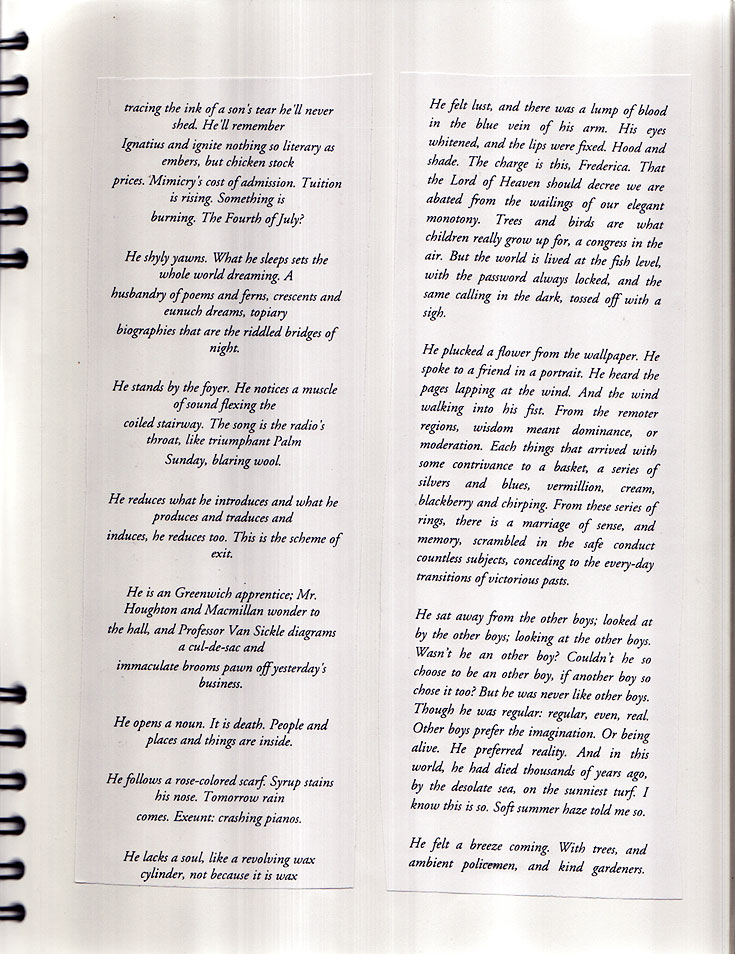 tracing the ink of a son's tear he'll never
shed. He'll remember
Ignatius and ignite nothing so literary as
embers, but chicken stock
prices. Mimicry's cost of admission. Tuition
is rising. Something is
burning. The Fourth of July?
He shyly yawns. What he sleeps sets the
whole world dreaming. A
husbandry of poems and ferns, crescents and
eunuch dreams, topiary
biographies that are the riddled bridges of
night.
He stands by the foyer. He notices a muscle
of sound flexing the
coiled stairway. The song is the radio's
throat, like triumphant Palm
Sunday, blaring wool.
He reduces what he introduces and what he
produces and traduces and
induces, he reduces too. This is the scheme of
exit.
He is an Greenwich apprentice; Mr.
Houghton and Macmillan wonder to
the hall, and Professor Van Sickle diagrams
a cul-de-sac and
immaculate brooms pawn off yesterday's
business.
He opens a noun. It is death. People and
places and things are inside.
He follows a rose-colored scarf. Syrup stains
his nose. Tomorrow rain
comes. Exeunt: crashing pianos.
He lacks a soul, like a revolving wax
cylinder, not because it is wax
He felt lust, and there was a lump of blood
in the blue vein of his arm. His eyes
whitened, and the lips were fixed. Hood and
shade. The charge is this, Frederica. That
the Lord of Heaven should decree we are
abated from the wailings of our elegant
monotony. Trees and birds are what
children really grow up for, a congress in the
air. But the world is lived at the fish level,
with the password always locked, and the
same calling in the dark, tossed off with a
sigh.
He plucked a flower from the wallpaper. He
spoke to a friend in a portrait. He heard the
pages lapping at the wind. And the wind
walking into his fist. From the remoter
regions, wisdom meant dominance, or
moderation. Each things that arrived with
some contrivance to a basket, a series of
silvers and blues, vermillion, cream,
blackberry and chirping. From these series of
rings, there is a marriage of sense, and
memory, scrambled in the safe conduct
countless subjects, conceding to the every-day
transitions of victorious pasts.
He sat away from the other boys; looked at
by the other boys; looking at the other boys.
Wasn't he an other boy? Couldn't he so
choose to be an other boy, if another boy so
chose it too? But he was never like other boys.
Though he was regular: regular, even, real.
Other boys prefer the imagination. Or being
alive. He preferred reality. And in this
world, he had died thousands of years ago,
by the desolate sea, on the sunniest turf. I
know this is so. Soft summer haze told me so.
He felt a breeze coming. With trees, and
ambient policemen, and kind gardeners.